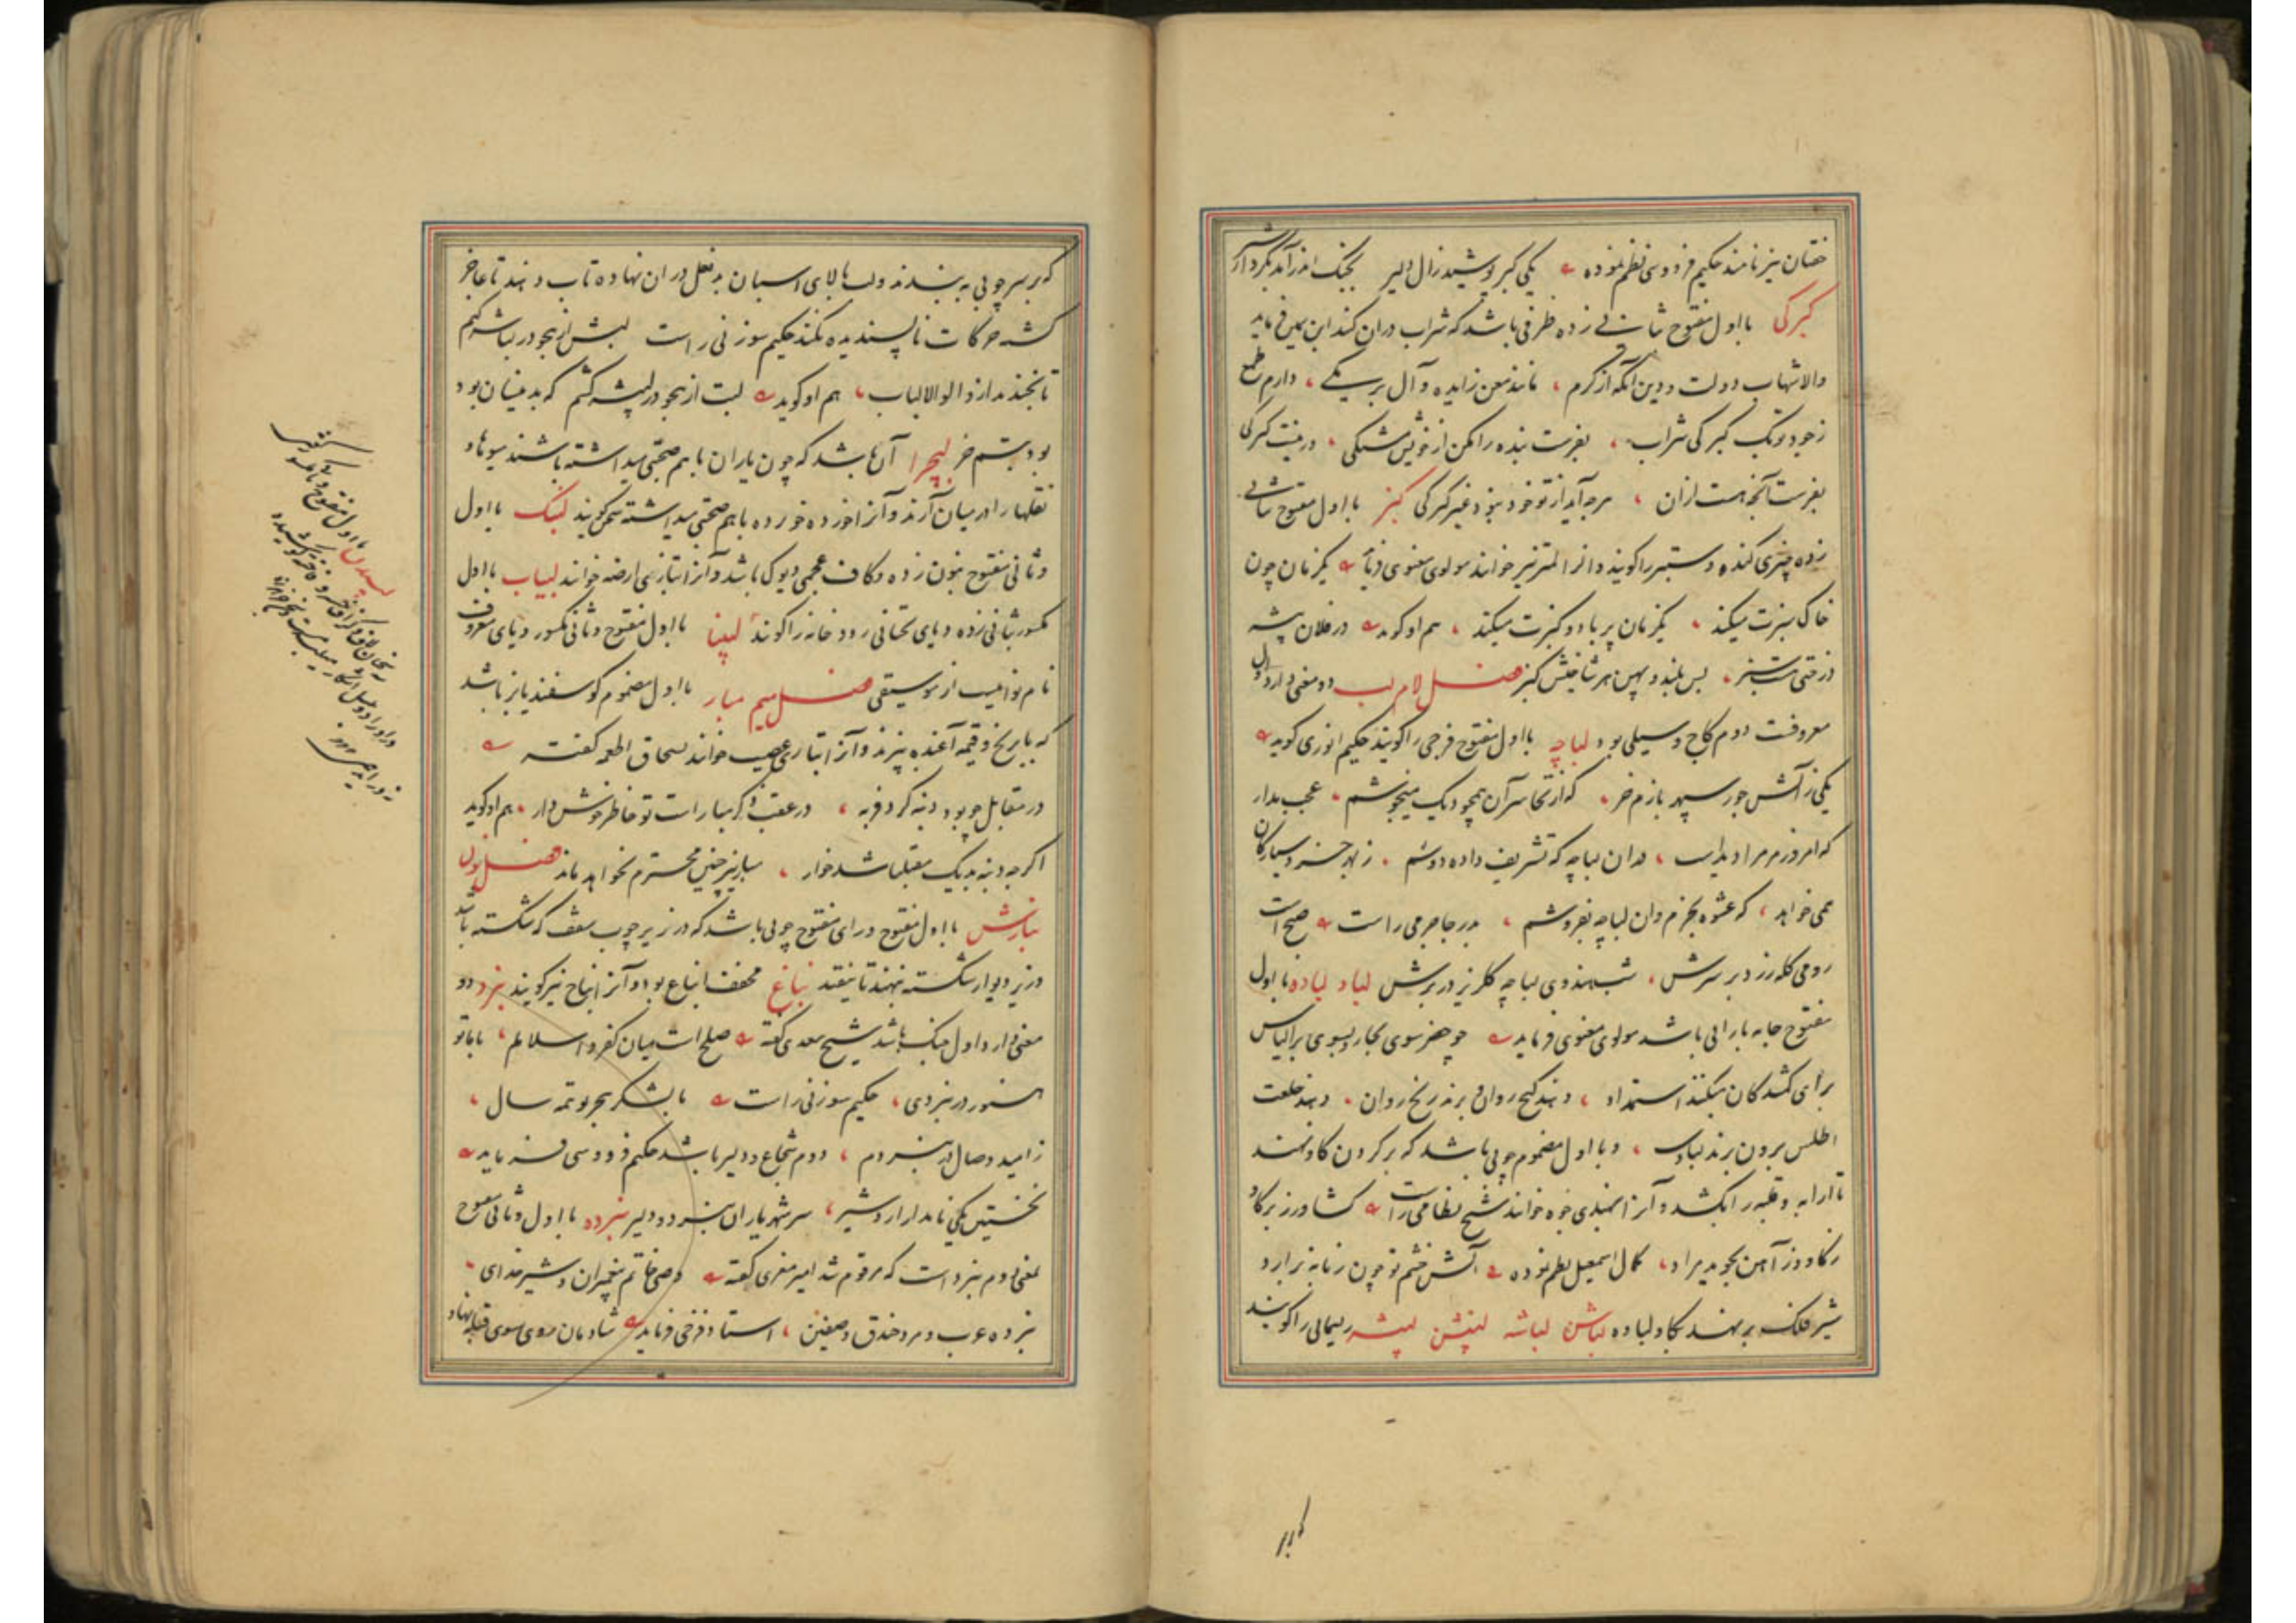 خفتان نیز نامند حکیم فردوسی نظم نموده یکی کبر پوشید زال دلیر بجنگ اندر آمد بکردار شیر
کبرکی با اول مفتوح بثانی زده ظرفی باشد که شراب دران کنند ابن یمین فرماید
والا شهاب دولت و دین آنکه از کرم مانند معن زایده و آل برمکی دارم طمع
ز جود تو یک کبرکی شراب بفرست بنده را مکن از خویش مشتکی ور نیست کبرکی
بفرست آنچه هست ازان هرچه آید از تو خود نبود غیر کبرکی کبز با اول مفتوح بثانی
زده چیزی کنده و ستبر را کویند و انرا نیز خوانند مولوی معنوی فرماید یکزمان چون
خاک سبزت میکند یکزمان پر باد و کبزت میکند هم او کوید در فلان بیشه
درختی هست سبز بس بلند و پهن هر شاخیش کبز فصل لام لب دو معنی دارد اول
معروفست دوم کاج و سیلی بود لباچه با اول مفتوح فرجی را کویند حکیم انوری کوید
یکی ز آتش جور سپهر بازم خر که از تف سر آن همچو دیک میجوشم عجب مدار
که امروز مر مرا دیداست دران لباچه که تشریف داده دوشم ز بهر خسرو سیارکان
همی خواهد که عشوه بخرم وان لباچه بفروشم بدر جاجرمی راست صبح است
رومی کله زر بر سرش شب هندوی لباچه کلریز در برش لباد لباده با اول
مفتوح جامه بارانی باشد مولوی معنوی فرماید چو خضر سوی بحار و بسوی بر الیاس
برای کمشدکان میکنند استمداد دهند کنج روان و برند رنج روان دهند خلعت
اطلس برون برند لباد و با اول مضموم چوبی باشد که بر کردن کاو نهند
تا ارابه و قلبه را بکشد و آنرا بهندی جوه خوانند شیخ نظامی راست کشاورز بر کاو
ز کاو و ز آهن بجوید مراد کمال اسمعیل نظم نموده آتش خشم تو چون زبانه برارد
شیر فلک بر نهد بکاو لباده لباش لباشه لبیشن لبیشه ریسمانی را کویند
که بر
که بر سر چوبی به بندند و لب بالای اسبان بد نعل در ان نهاده تاب دهند تا عاجز
کشته حرکات ناپسندیده نکند حکیم سوزنی راست لبش از هجو در لباشه کشم
تا بخندد از و الوالالباب هم او کوید لبت از هجو در لبیشه کشم که بدینسان بود
بود بستم خر لبچرا آن باشد که چون یاران با هم صحبتی میداشته باشند میوها و
نقلها را در میان آرند و آنرا خورده خورده با هم صحبتی میداشته سخن کویند لبنک با اول
و ثانی مفتوح بنون زده و کاف عجمی دیوک باشد و آنرا بتازی ارضه خوانند لبیاب با اول
مکسور بثانی زده و یای تحتانی رودخانه را کویند لبینا با اول مفتوح و ثانی مکسور و یای معروف
نام نوائیست از موسیقی فصل میم مبار با اول مضموم کوسفندیانه باشد
که با برنج و قیمه آغنده بپزند و آنرا بتازی عصیب خوانند بسحاق اطعمه کفته
در مقابل چو بود دنبه کرد فربه در عقب ذکر مبارات تو خاطر خوش دار هم او کوید
اکر چه دنبه بدیک مقیلبا شد خوار مبار نیز چنین محترم نخواهد ماند فصل نون
نبارش با اول مفتوح و رای مفتوح چوبی باشد که در زیر چوب سقف که شکسته باشد
و زیر دیوار شکسته نهند تا نیفتد نباغ مخفف انباغ بود و آنرا نباج نیز کویند نبرد دو
معنی دارد اول جنک باشد شیخ سعدی کفته صلح است میان کفر و اسلام با ما تو
هنوز در نبردی حکیم سوزنی راست با لشکر هجر تو همه سال
ز امید وصال در نبردم دوم شجاع و دلیر باشد حکیم فردوسی فرماید
نخستین یکی نامدار اردشیر سر شهریاران نبرد و دلیر نبرده با اول و ثانی مفتوح
بمعنی دوم نبرد است که مرقوم شد امیر معزی کفته وصی خاتم پیغمبران و شیر خدای
نبرده عرب و مرد خندق و صفین استاد فرخی فرماید شادمان روی سوی قبله نهاد